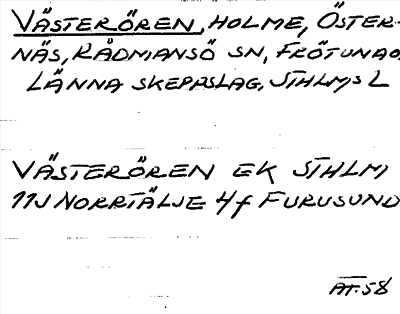 VÄSTERÖREN, HOLME, ÖSTER-
NÄS, RÅDMANSÖ SN, FRÖTUNA O.
LÄNNA SKEPPSLAG, STHLMS L
VÄSTERÖREN EK STHLM
11J NORRTÄLJE 4f FURUSUND
AT. 58